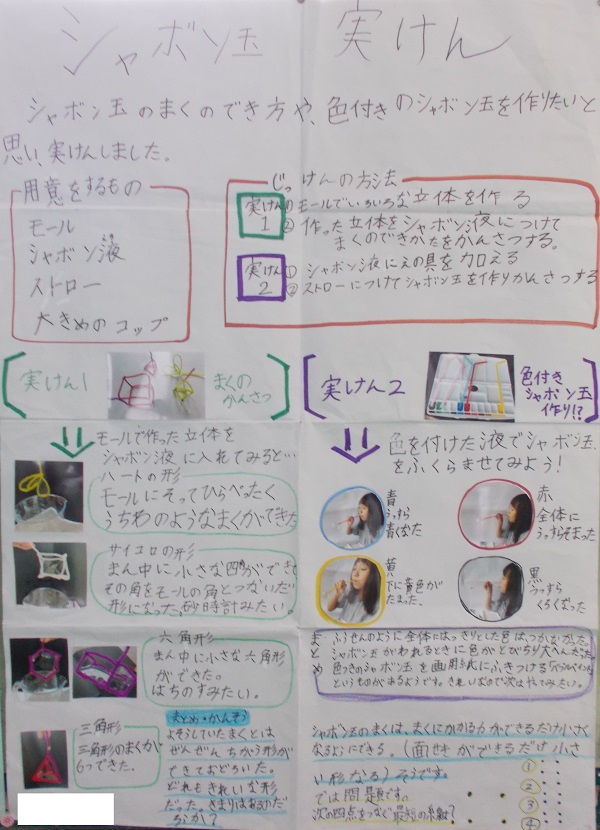 シャボン玉 実けん
シャボン玉のまくのでき方や、色付きのシャボン玉を作りたいと
思い、実けんしました。
用意をするもの
モール
シャボン液
ストロー
大きめのコップ
じっけんの方法
実けん1
①モールでいろいろな立体を作る
②作った立体をシャボン液につけて
まくのできかたをかんさつする。
実けん2
①シャボン液にえの具を加える
②ストローにつけてシャボン玉を作りかんさつする
実けん1
まくの
かんさつ
モールで作った立体を
シャボン液に入れてみると…
ハートの形
モールにそってひらべったく
うちわのようなまくができた
サイコロの形
まん中に小さな四角ができ
その角をモールの角とつないだ
形になった。砂時計みたい。
六角形
まん中に小さな六角形
ができた。
はちのすみたい。
三角形
三角形のまくが
6つできた。
まとめ・かんそう
よそうしていたまくとは
ぜんぜんちがう形が
できておどろいた。
どれもきれいな形
だった。きまりはあるのだ
ろうか?
実けん2
色付き
シャボン玉
作り!?
色を付けた液でシャボン玉
をふくらませてみよう!
青
うっすら
青くなった
赤
全体に
うっすらそまった
黄
下に黄色が
たまった。
黒
うっすら
くろくなった
まとめ
ふうせんのように全体にはっきりとした色はつかなかった。
シャボン玉がわれるときに色がとびちり大へんだった。
色つきのシャボン玉を画用紙にふきつける
というものがあるようです。きれいなので次はやってみたい。
シャボン玉のまくは、まくにかかる力ができるだけ小さく
なるようにできる。(面せきができるだけ小さ
い形になる)そうです。
では問題です。
次の四点をつなぐ最短の糸は?
①
②
③
④